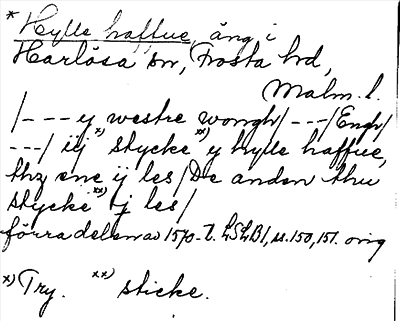 * Hylle haffue, äng i
Harlösa sn, Frosta hd,
Malm. l.
/--- y westre wongh/---/Engh/
---/ iij x) stycke xx) y hylle haffue,
thz ene ij les/De anden thu
stycke xx) j les/
förra delen av 1570-t. LSLB1, s. 150, 151. orig
x) Try. xx) sticke.